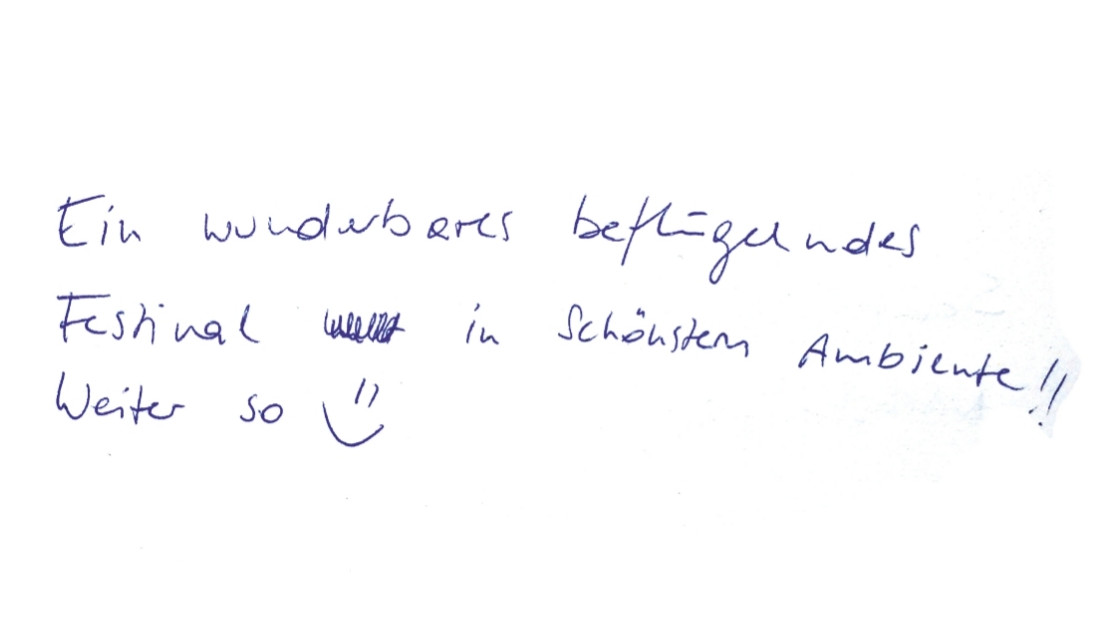 Ein wunderbares beflügelndes
Festival in schönstem Ambiente!!
Weiter so